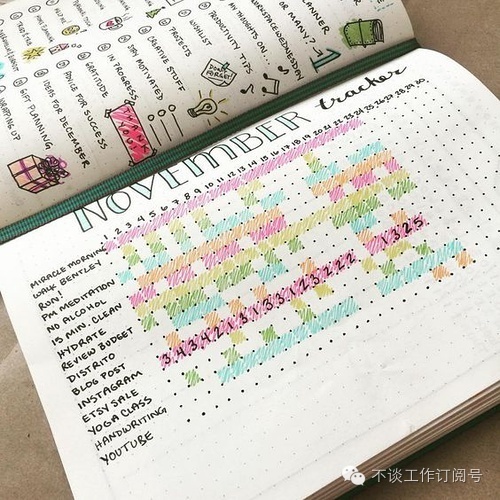 PLANNER
OR MANY?
#PLANWITHMEWEDNESDAY
MY THOUGHTS ON...
PRODUCTIVITY TIPS
WISHLIST
PROJECTS
CREATIVE STUFF
STAY MOTIVATED
IN PROGRESS
GRATITUDE
ADVICE FOR SUCCESS
IDEAS FOR DECEMBER
GIFT PLANNING
WRAPPING UP
DON'T
FORGET!
1
NOVEMBER tracker
1 2 3 4 5 6 7 8 9 10 11 12 13 14 15 16 17 18 19 20 21 22 23 24 25 26 27 28 29 30
MIRACLE MORNING
WALK BENTLEY
RUN!
PM MEDITATION
NO ALCOHOL
15 MIN. CLEAN
HYDRATE
REVIEW BUDGET
DISTRITO
BLOG POST
INSTAGRAM 3 4 3 4 2 1 3 1 3 3 1 2 3 2 2 2 1 3 2 5
ETSY SALE
YOGA CLASS
HANDWRITING
YOUTUBE
不谈工作订阅号